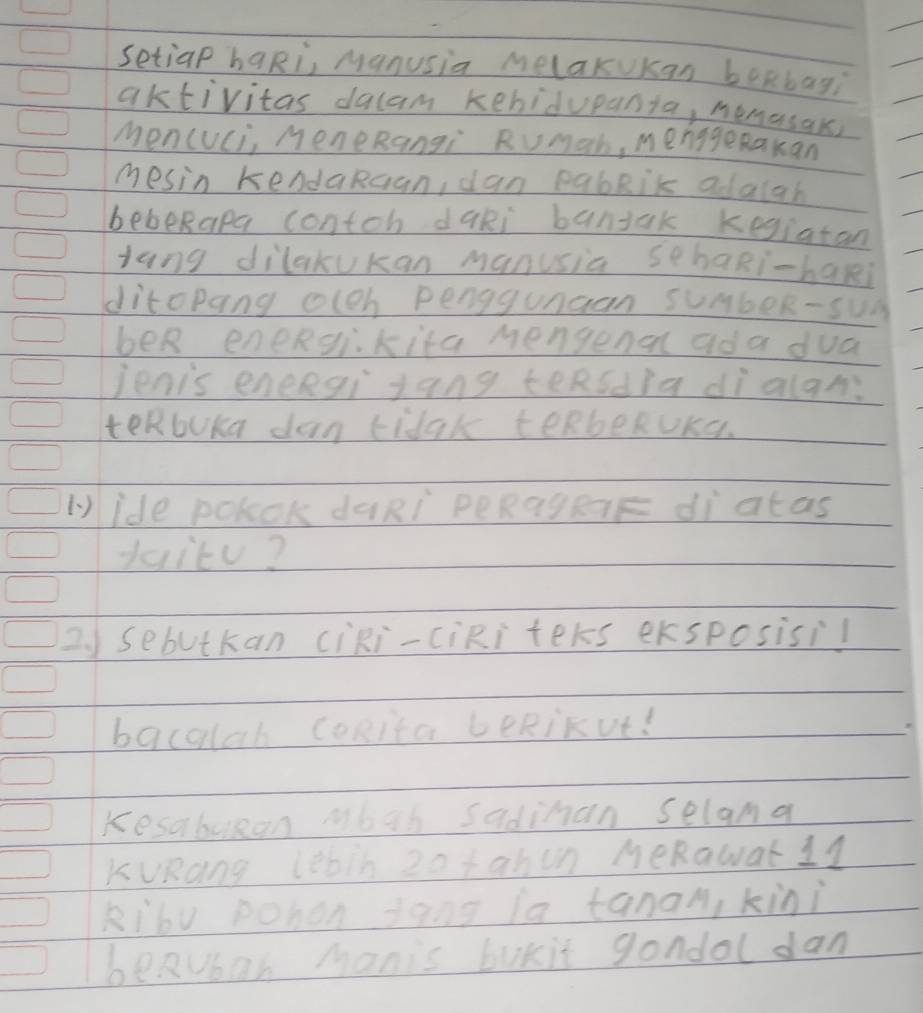 setiap hari, Manusia Melakukan berbagi
aktivitas dalam kehidupanya, memasak,
Mencuci, Menerangi Rumah, menggerakan
Mesin kendaraan, dan pabrik adalah
beberapa contoh dari banyak kegiatan
yang dilakukan manusia sehari-hari
ditopang oleh penggunaan sumber-sum
ber energi. kita Mengenal ada dua
jenis energi yang tersdia di alam:
terbuka dan tidak terberuka.
1.) ide pokok dari peragraf di atas
yaitu?
2.) sebutkan ciri-ciri teks eksposisi!
bacalah cerita berikut!
Kesaburan Mbah sadiman selama
kurang lebih 20 tahun Merawat 11
Ribu pohon yang ia tanam, kini
berubah Manis bukit gondol dan